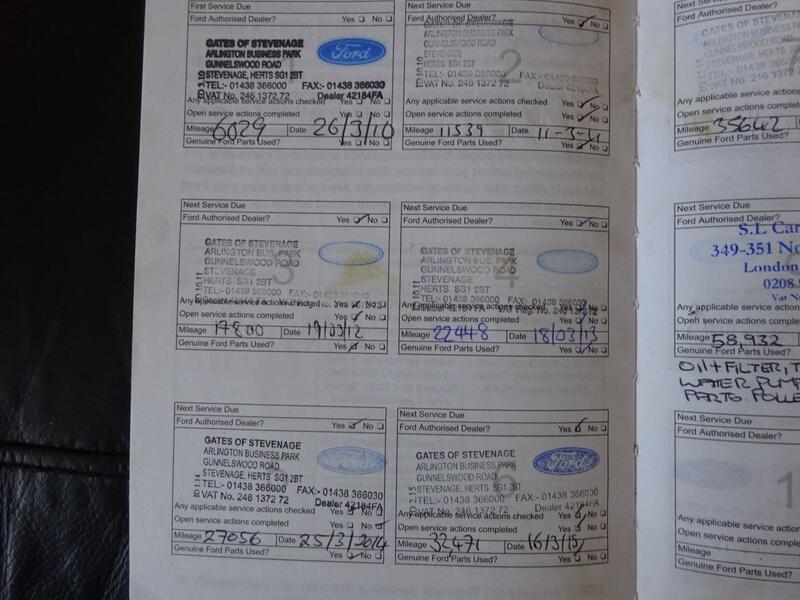 First Service Due
Ford Authorised Dealer? Yes No
GATES OF STEVENAGE
ARLINGTON BUSINESS PARK
GUNNELSWOOD ROAD
STEVENAGE, HERTS SG1 2BT
TEL:- 01438 366000 FAX:- 01438 366030
VAT No. 246 1372 72 Dealer 42184FA
Ford
Any applicable service actions checked Yes No
Open service actions completed Yes No
Mileage 6029 Date 26/3/10
Genuine Ford Parts Used? Yes No
Next Service Due
Ford Authorised Dealer? Yes No
GATES OF STEVENAGE
ARLINGTON BUSINESS PARK
GUNNELSWOOD ROAD
STEVENAGE
HERTS SG1 2BT
TEL:- 01438 366000
VAT No. 246 1372 72
2
Any applicable service actions checked Yes No
Open service actions completed Yes No
Mileage 11539 Date 11-3-11
Genuine Ford Parts Used? Yes No
Next Service Due
Ford Authorised Dealer? Yes No
GATES OF STEVENAGE
ARLINGTON BUS. PARK
GUNNELSWOOD ROAD
STEVENAGE
HERTS SG1 2BT
TEL:- 01438 366000
3
Any applicable service actions checked Yes No
Open service actions completed Yes No
Mileage 17800 Date 19/03/12
Genuine Ford Parts Used? Yes No
Next Service Due
Ford Authorised Dealer? Yes No
GATES OF STEVENAGE
ARLINGTON BUS. PARK
GUNNELSWOOD ROAD
STEVENAGE
HERTS SG1 2BT
4
Any applicable service actions checked Yes No
Open service actions completed Yes No
Mileage 22448 Date 18/03/13
Genuine Ford Parts Used? Yes No
Next Service Due
Ford Authorised Dealer? Yes No
GATES OF STEVENAGE
ARLINGTON BUSINESS PARK
GUNNELSWOOD ROAD
STEVENAGE, HERTS SG1 2BT
TEL:- 01438 366000 FAX:- 01438 366030
VAT No. 246 1372 72 Dealer 42184FA
Any applicable service actions checked Yes No
Open service actions completed Yes No
Mileage 27056 Date 25/3/2014
Genuine Ford Parts Used? Yes No
Next Service Due
Ford Authorised Dealer? Yes No
GATES OF STEVENAGE
ARLINGTON BUSINESS PARK
GUNNELSWOOD ROAD
STEVENAGE, HERTS SG1
TEL:- 01438 366000 FAX:- 01438 366030
VAT No. 246 1372 72 Dealer 42184FA
Ford
6
Any applicable service actions checked Yes No
Open service actions completed Yes No
Mileage 32,471 Date 16/3/15
Genuine Ford Parts Used? Yes No
Ford Authorised
Any applicable service
Open service actions
Mileage 35642
Genuine Ford Parts Used?
Next Service Due
Ford Authorised Dealer?
S.L Car
349-351 No
London
0208
Vat No
Any applicable service
Open service actions comple
Mileage 58,932
Genuine Ford Parts Used?
OIL + FILTER, T
WATER PUMP
PARTS
Next Service Due
Ford Authorised Dealer?
1
Any applicable service actions
Open service actions completed
Mileage
Genuine Ford Parts Used?